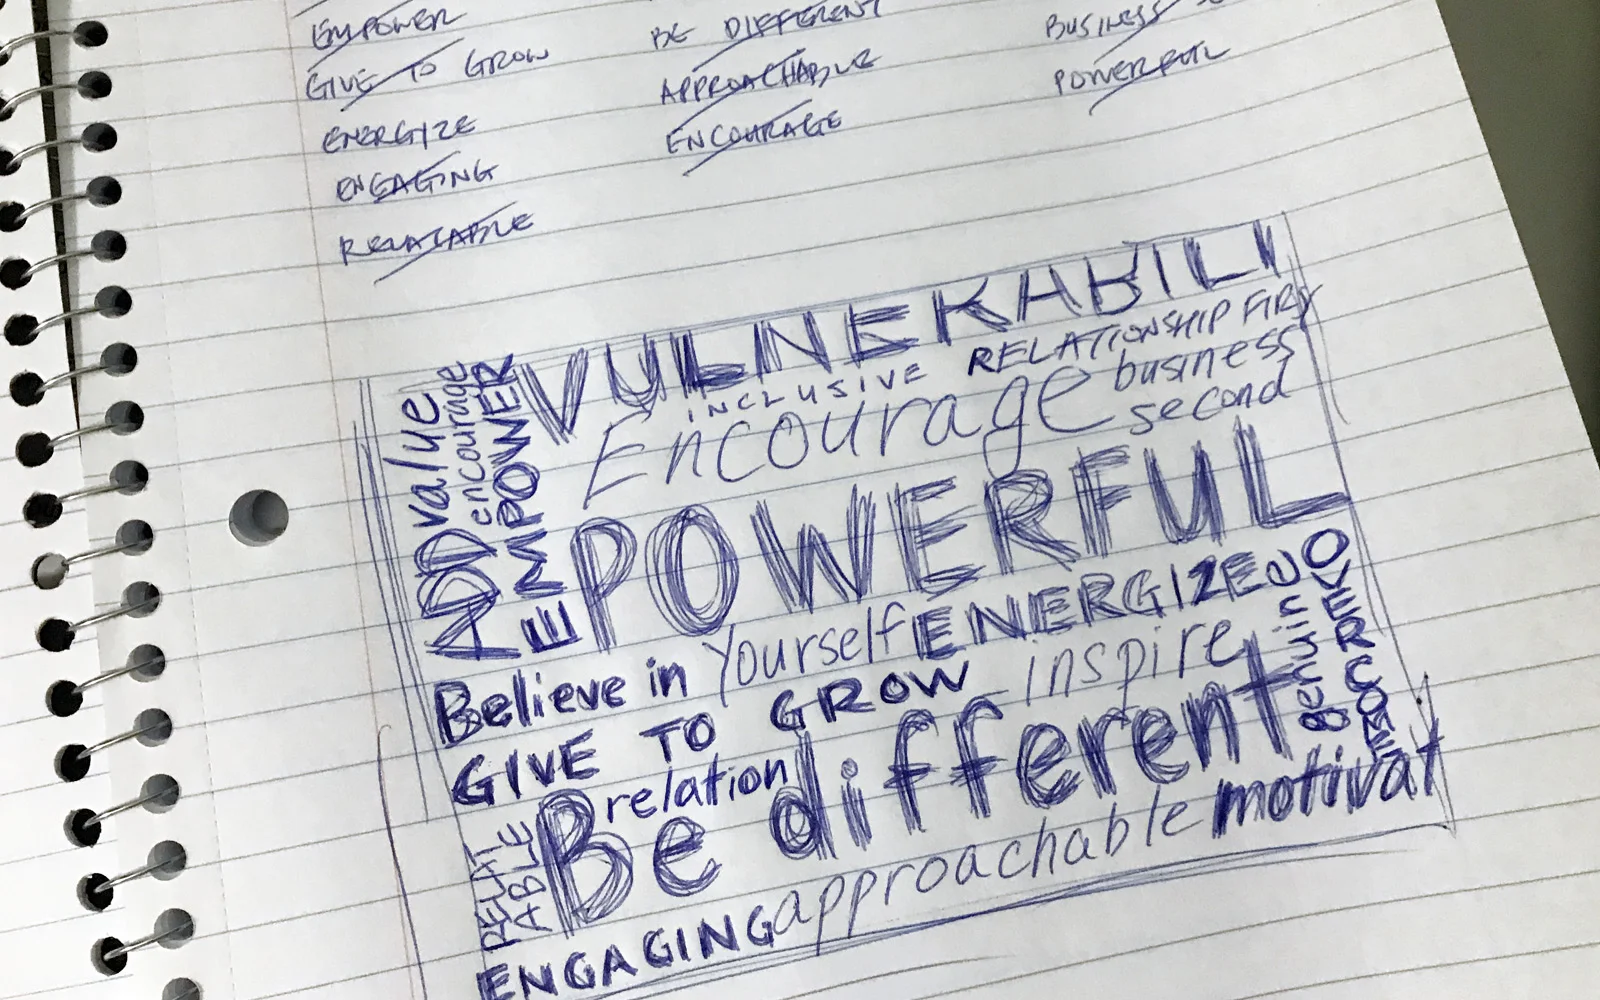 EMPOWER
GIVE TO GROW
ENERGIZE
ENGAGING
RELATABLE
BE DIFFERENT
APPROACHABLE
ENCOURAGE
BUSINESS
POWERFUL
VULNERABILI
INCLUSIVE RELATIONSHIP FIRST
Encourage business
second
ADD value
encourage
EMPOWER
POWERFUL
Believe in Yourself ENERGIZE
GIVE TO GROW inspire
OVERCOME
relation
Be different
RELAT
ABLE
ENGAGING approachable motivat